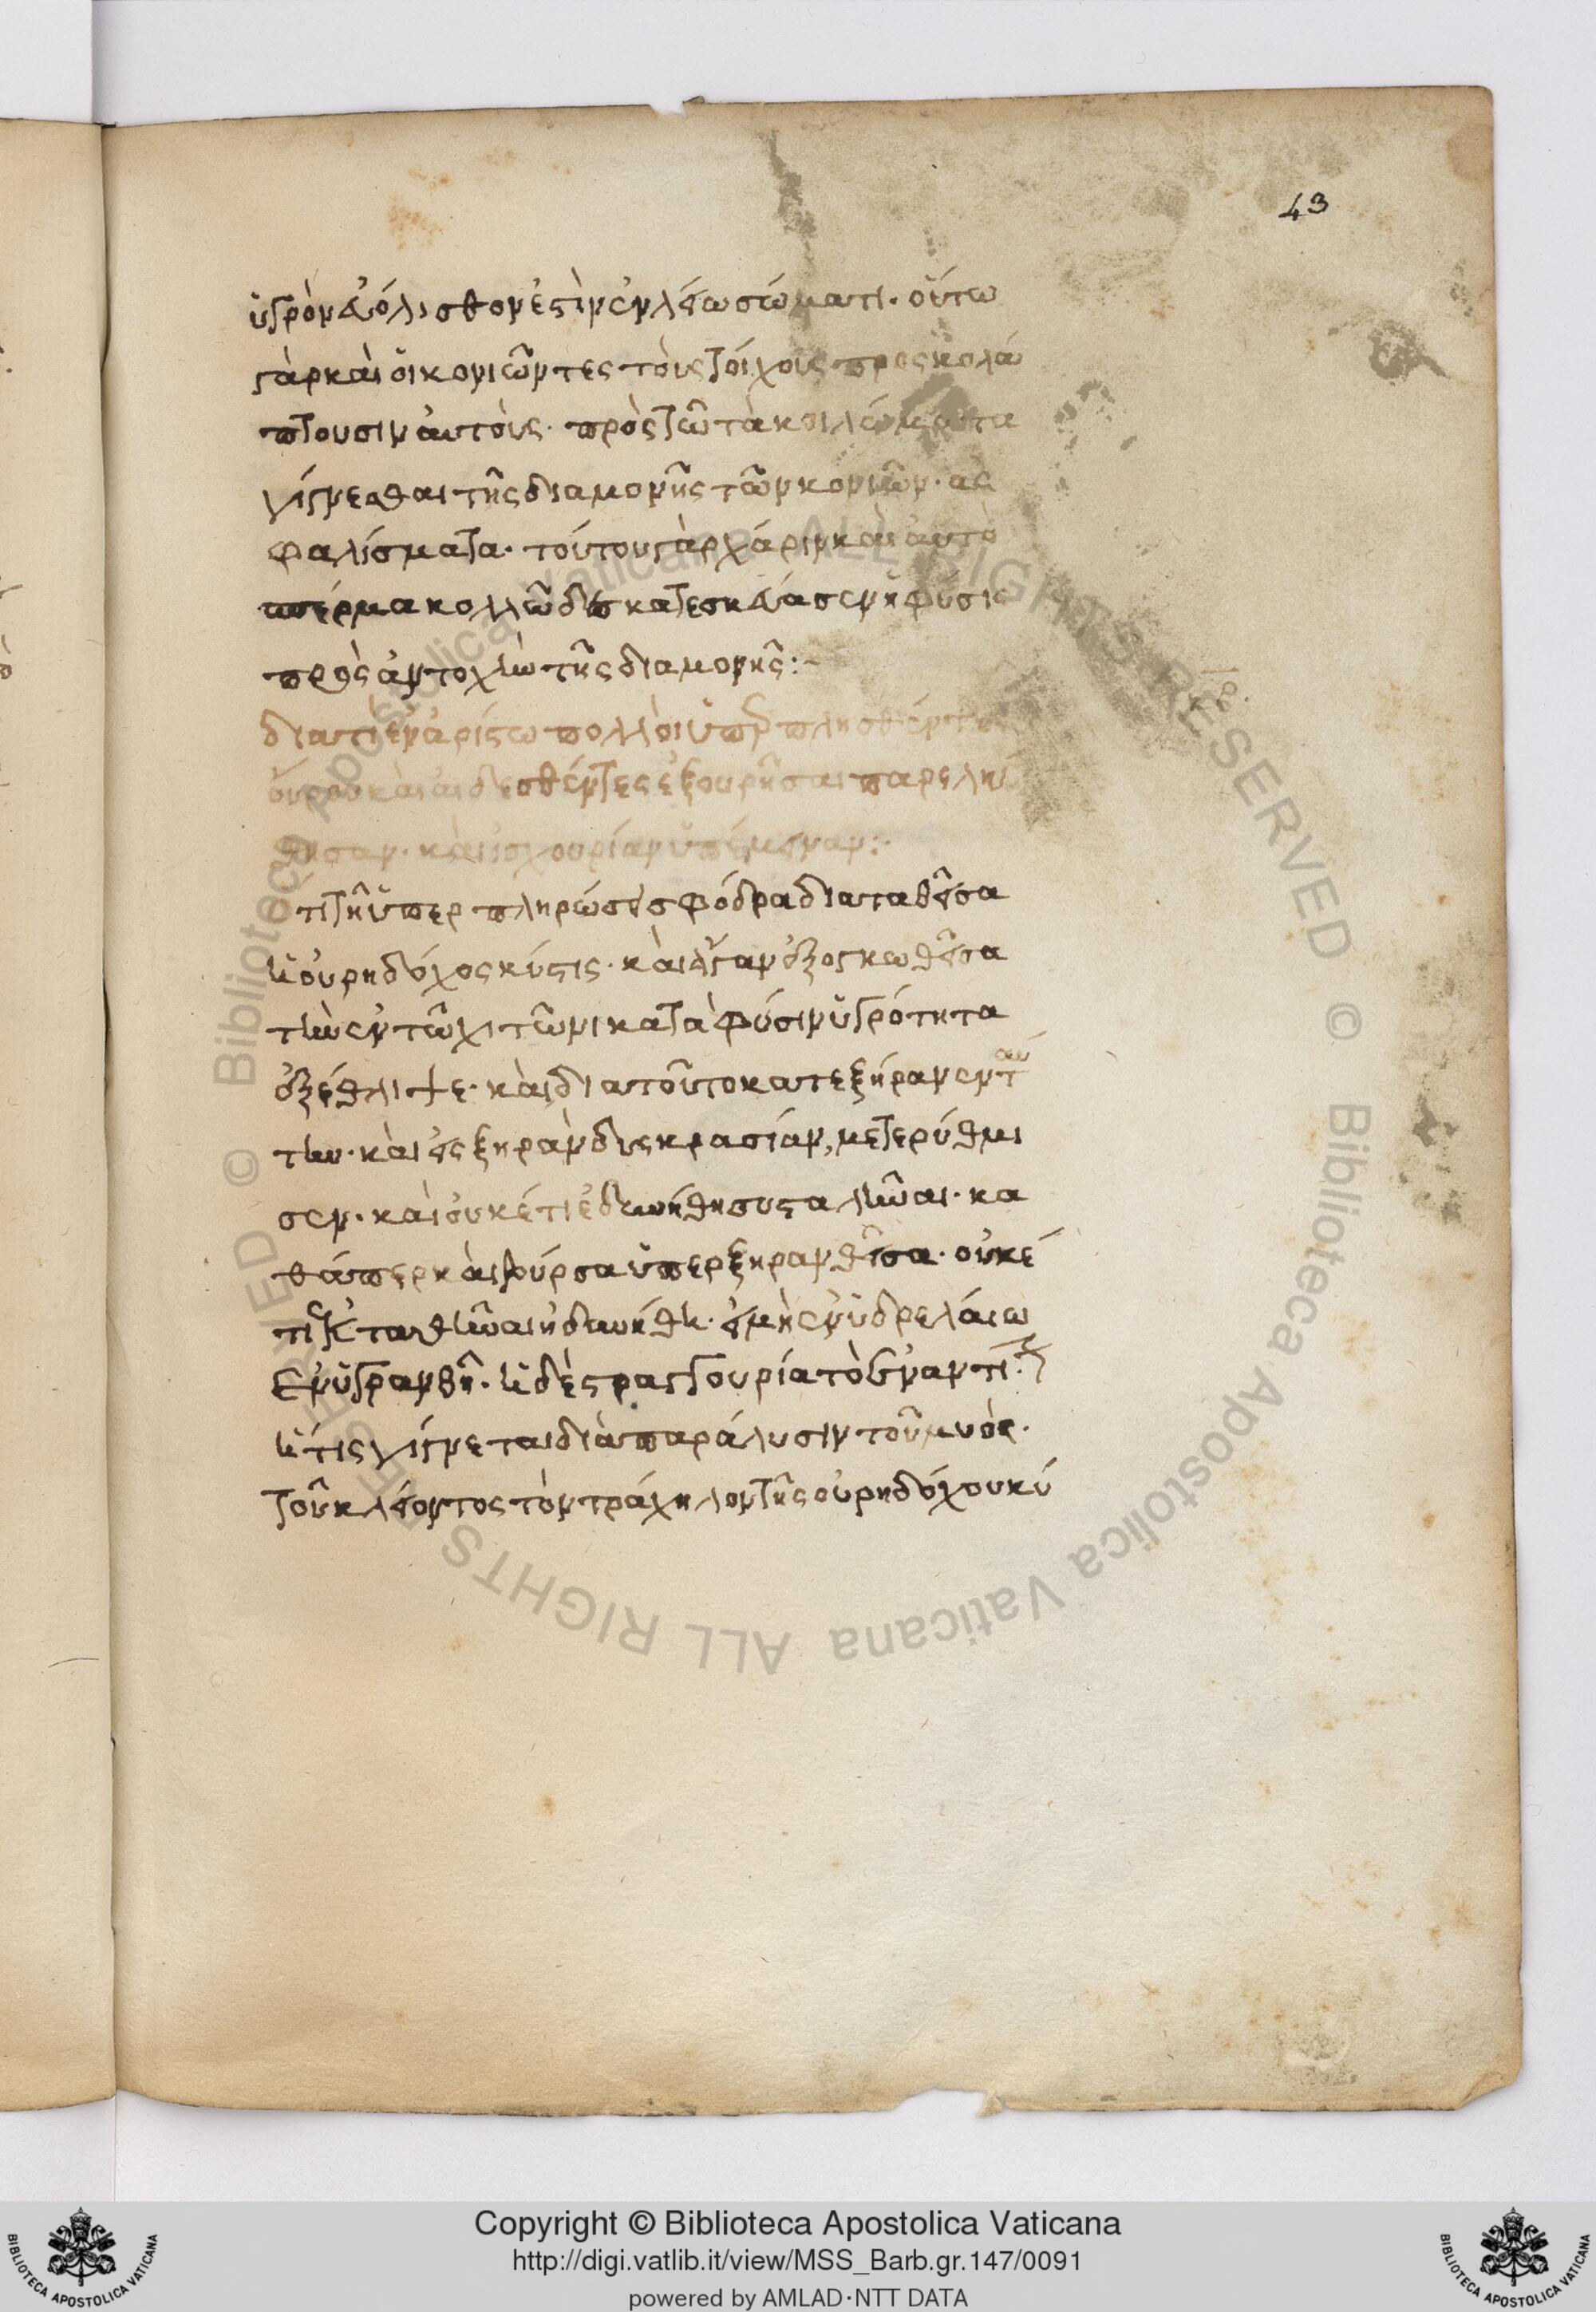 43
ὑγρὸν εὐόλισθον ἐστὶν ἐν λείω σώματι. οὕτω
γὰρ καὶ οἱ κονιῶντες τοὺς τοίχους προσκολά
πτουσιν αὐτοὺς. πρὸς τῶ τὰ κοιλώματα
γίγνεσθαι τῆς διαμονῆς τῶν κονιῶν. ἀς
φαλίσματα. τούτου γὰρ χάριν καὶ αὐτὸ
σπέρμα κολλῶδες κατεσκεύασεν ἡ φύσις
πρὸς ἀντοχὴν τῆς διαμονῆς:-
διατί ἐν ἀρίστω πολλοὶ ὑπερπλησθέντες
οὔρου καὶ αἰδεσθέντες ἐξουρῆσαι παρελή
φθησαν. καὶ ἰσχουρίαν ὑπέμειναν:
Ὅτι τῆ ὑπερπληρώσει σφόδρα διαταθεῖσα
ἡ οὐρηδόχος κύστις. καὶ λίαν ἐξογκωθεῖσα
τὴν ἐν τῶ χιτῶνι κατὰ φύσιν ὑγρότητα
ἐξέθλιψε. καὶ διατοῦτο κατεξήρανεν αὐ
τὴν. καὶ εἰς ξηρὰν δυσκρασίαν, μετερύθμι
σεν. καὶ οὐκέτι ἐδυνήθη συσταλῆναι. κα
θάπερ καὶ βύρσα ὑπερξηρανθεῖσα. οὐκέ
τι ἐκταθῆναι ἠδυνήθη. εἰ μὴ ἐν ὑδρελαίω
Ἐνυγρανθῆ. ἡ δὲ στραγγουρία τὸ ἐναντίον
ἥτις γίγνεται διὰ παράλυσιν τοῦ μυὸς.
τοῦ κλείοντος τὸν τράχηλον τῆς οὐρηδόχου κύ
Copyright © Biblioteca Apostolica Vaticana
http://digi.vatlib.it/view/MSS_Barb.gr.147/0091
powered by AMLAD·NTT DATA
BIBLIOTECA APOSTOLICA VATICANA
BIBLIOTECA APOSTOLICA VATICANA
© Biblioteca Apostolica Vaticana ALL RIGHTS RESERVED © Biblioteca Apostolica Vaticana ALL RIGHTS RESERVED